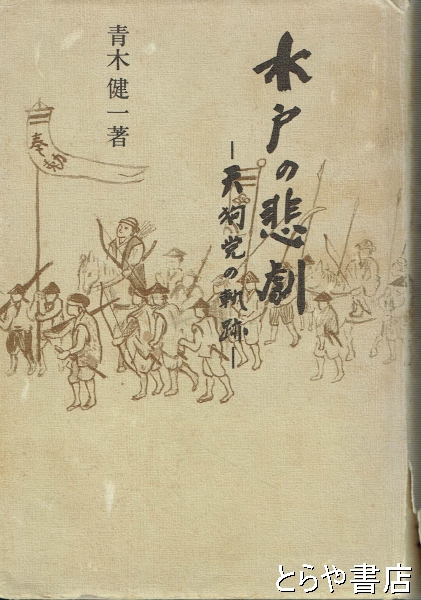 水戸の悲劇
−天狗党の軌跡−
青木健一著
奉勅
とらや書店